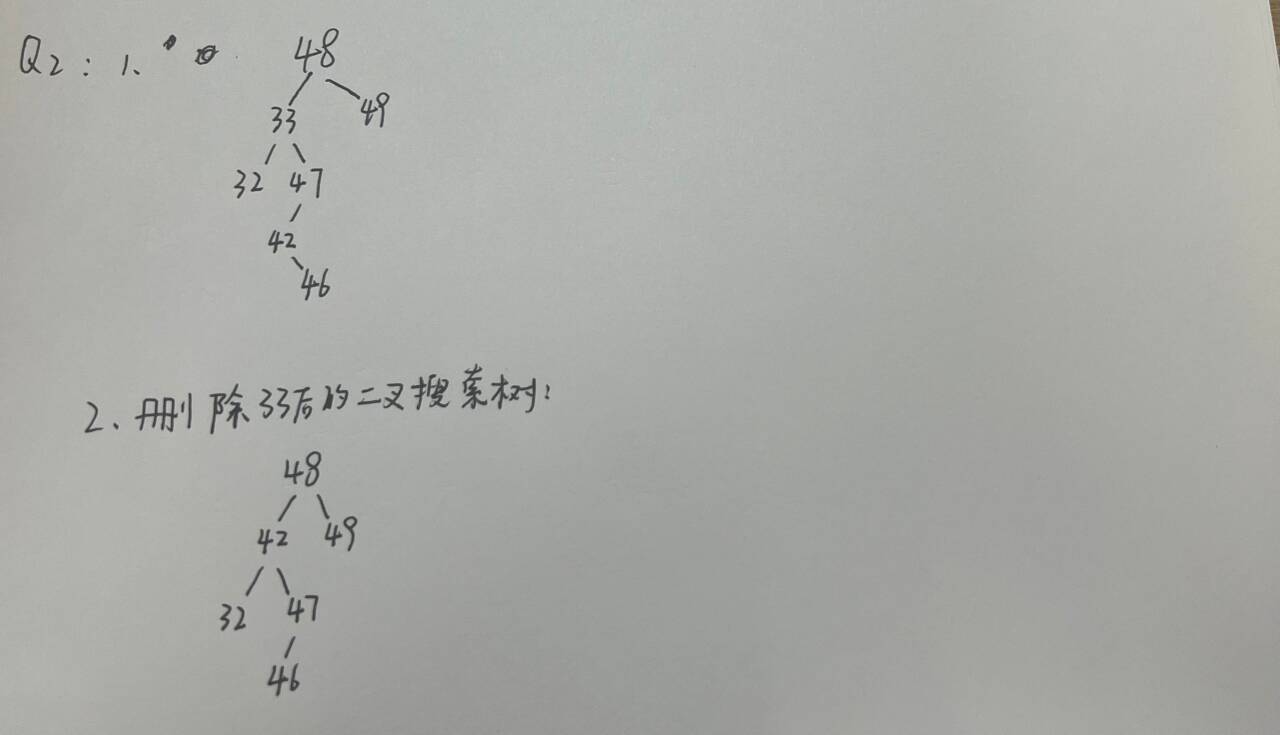 Q2: 1. 48
33 49
32 47
42
46
2、删除33后的二叉搜索树:
48
42 49
32 47
46